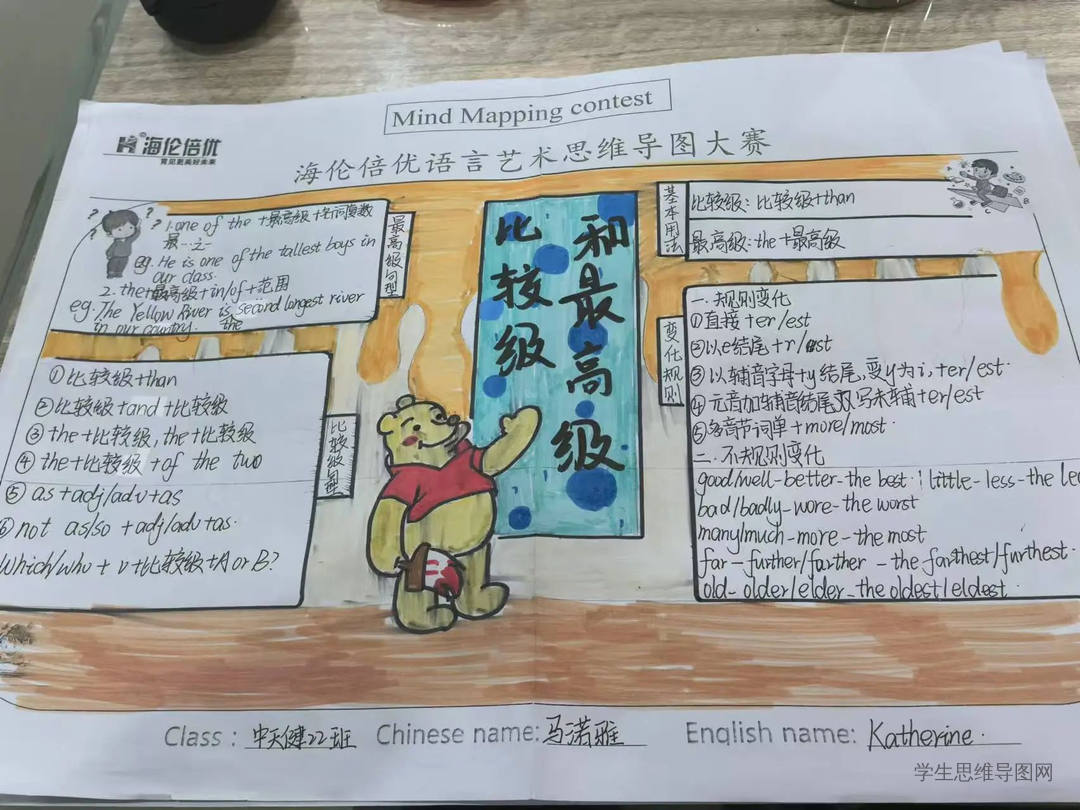 Mind Mapping contest
海伦倍优
育见更美好未来
海伦倍优语言艺术思维导图大赛
1.one of the +最高级+名词复数
最…之一
eg. He is one of the tallest boys in
our class.
2. the+最高级+in/of+范围
eg. The Yellow River is second longest river
in our country. the
最高级句型
比较级
和最高级
基本用法
比较级: 比较级+than
最高级: the +最高级
①比较级+than
②比较级+and+比较级
③the+比较级,the+比较级
④the+比较级+of the two
⑤ as+adj/adv+as
⑥not as/so+adj/adv+as.
Which/who + v+比较级+A or B?
比较级句型
变化规则
一.规则变化
①直接+er/est
②以e结尾+r/est
③以辅音字母+y结尾,变y为i,+er/est.
④元音加辅音结尾双写末辅+er/est
⑤多音节词单+more/most.
二.不规则变化
good/well-better-the best. little-less-the lea
bad/badly-wore-the worst
many/much-more-the most
far-further/farther-the farthest/furthest.
old-older/elder-the oldest/eldest.
Class: 中天健22班 Chinese name: 马潇雅 English name: Katherine.
学生思维导图网